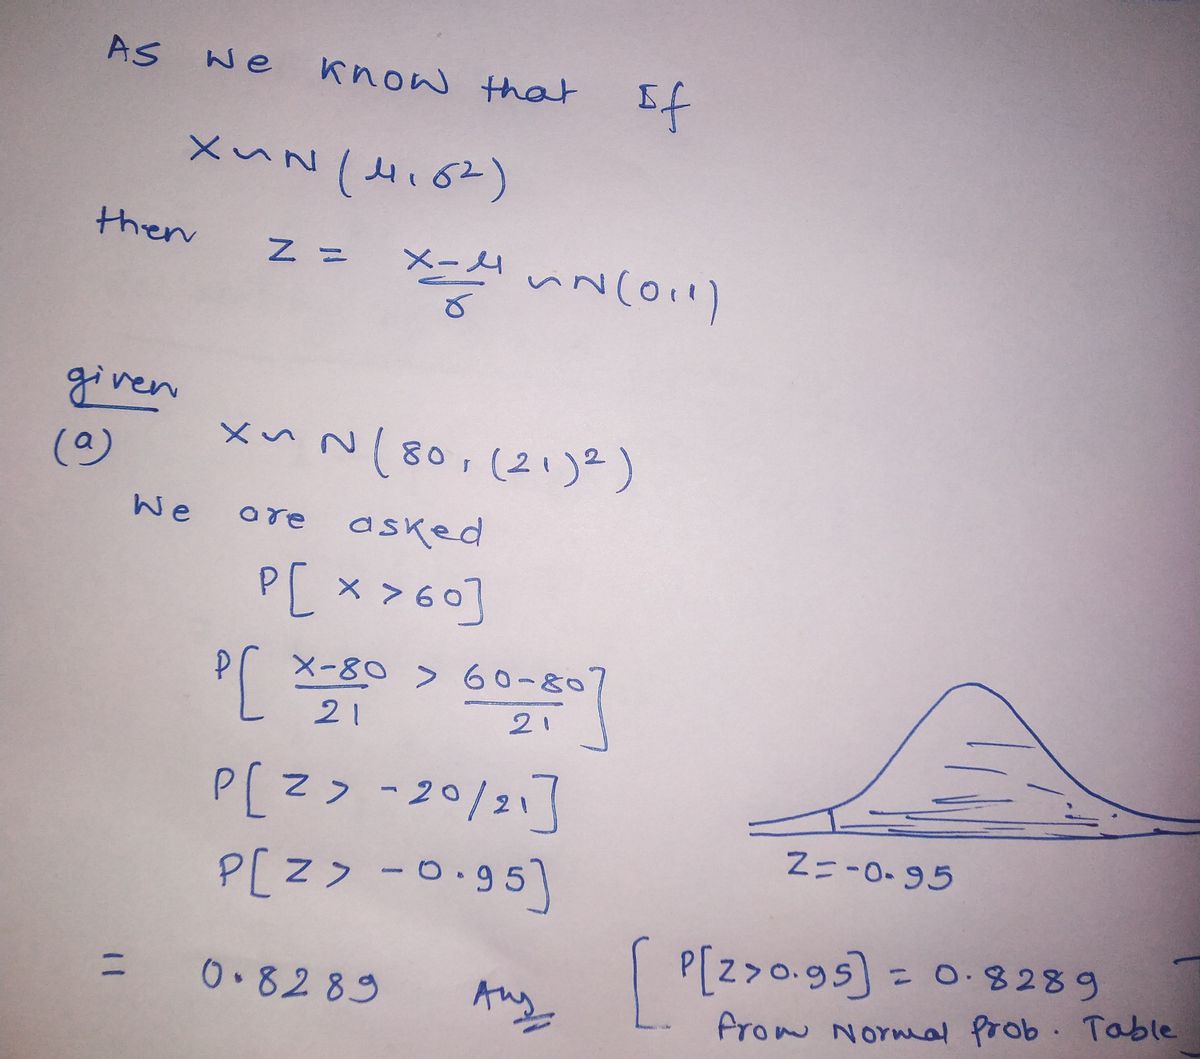 As we know that If
X ~ N(μ, σ²)
then Z = (X-μ)/σ ~ N(0,1)
given
(a) X ~ N(80, (21)²)
We are asked
P[X > 60]
P[(X-80)/21 > (60-80)/21]
P[Z > -20/21]
P[Z > -0.95]
Z = -0.95
= 0.8289 Ans
[P[Z>0.95] = 0.8289
from Normal Prob. Table